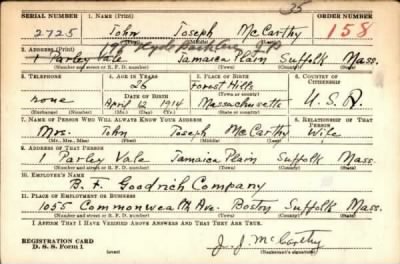 35
SERIAL NUMBER 1. NAME (Print) ORDER NUMBER
2725 John Joseph McCarthy 158
(First) (Middle) (Last)
2. ADDRESS (Print)
1 Parley Vale Jamaica Plain Suffolk Mass.
(Number and street or R. F. D. number) (Town) (County) (State)
3. TELEPHONE 4. AGE IN YEARS 5. PLACE OF BIRTH 6. COUNTRY OF CITIZENSHIP
26 Forest Hills
none DATE OF BIRTH (Town or county) U.S.A.
April 12 1914 Massachusetts
(Mo.) (Day) (Yr.) (State or country)
7. NAME OF PERSON WHO WILL ALWAYS KNOW YOUR ADDRESS 8. RELATIONSHIP OF THAT PERSON
Mrs. John Joseph McCarthy Wife
(Mr., Mrs., Miss) (First) (Middle) (Last)
9. ADDRESS OF THAT PERSON
1 Parley Vale Jamaica Plain Suffolk Mass.
(Number and street or R. F. D. number) (Town) (County) (State)
10. EMPLOYER'S NAME
B. F. Goodrich Company
11. PLACE OF EMPLOYMENT OR BUSINESS
1055 Commonwealth Ave. Boston Suffolk Mass.
(Number and street or R. F. D. number) (Town) (County) (State)
I AFFIRM THAT I HAVE VERIFIED ABOVE ANSWERS AND THAT THEY ARE TRUE.
REGISTRATION CARD
D. S. S. Form 1 (over) J. J. McCarthy
(Registrant's signature)